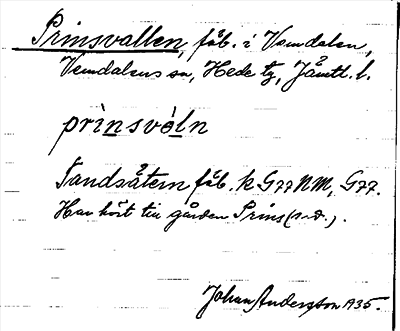 Prinsvallen, fäb. i Vemdalen,
Vemdalens sn, Hede tg, Jämtl. l.
prìnsvèln
Tandsätern fäb. k G77 NM, G77.
Har hört till gården Prins (n-d.).
Johan Andersson 1935.